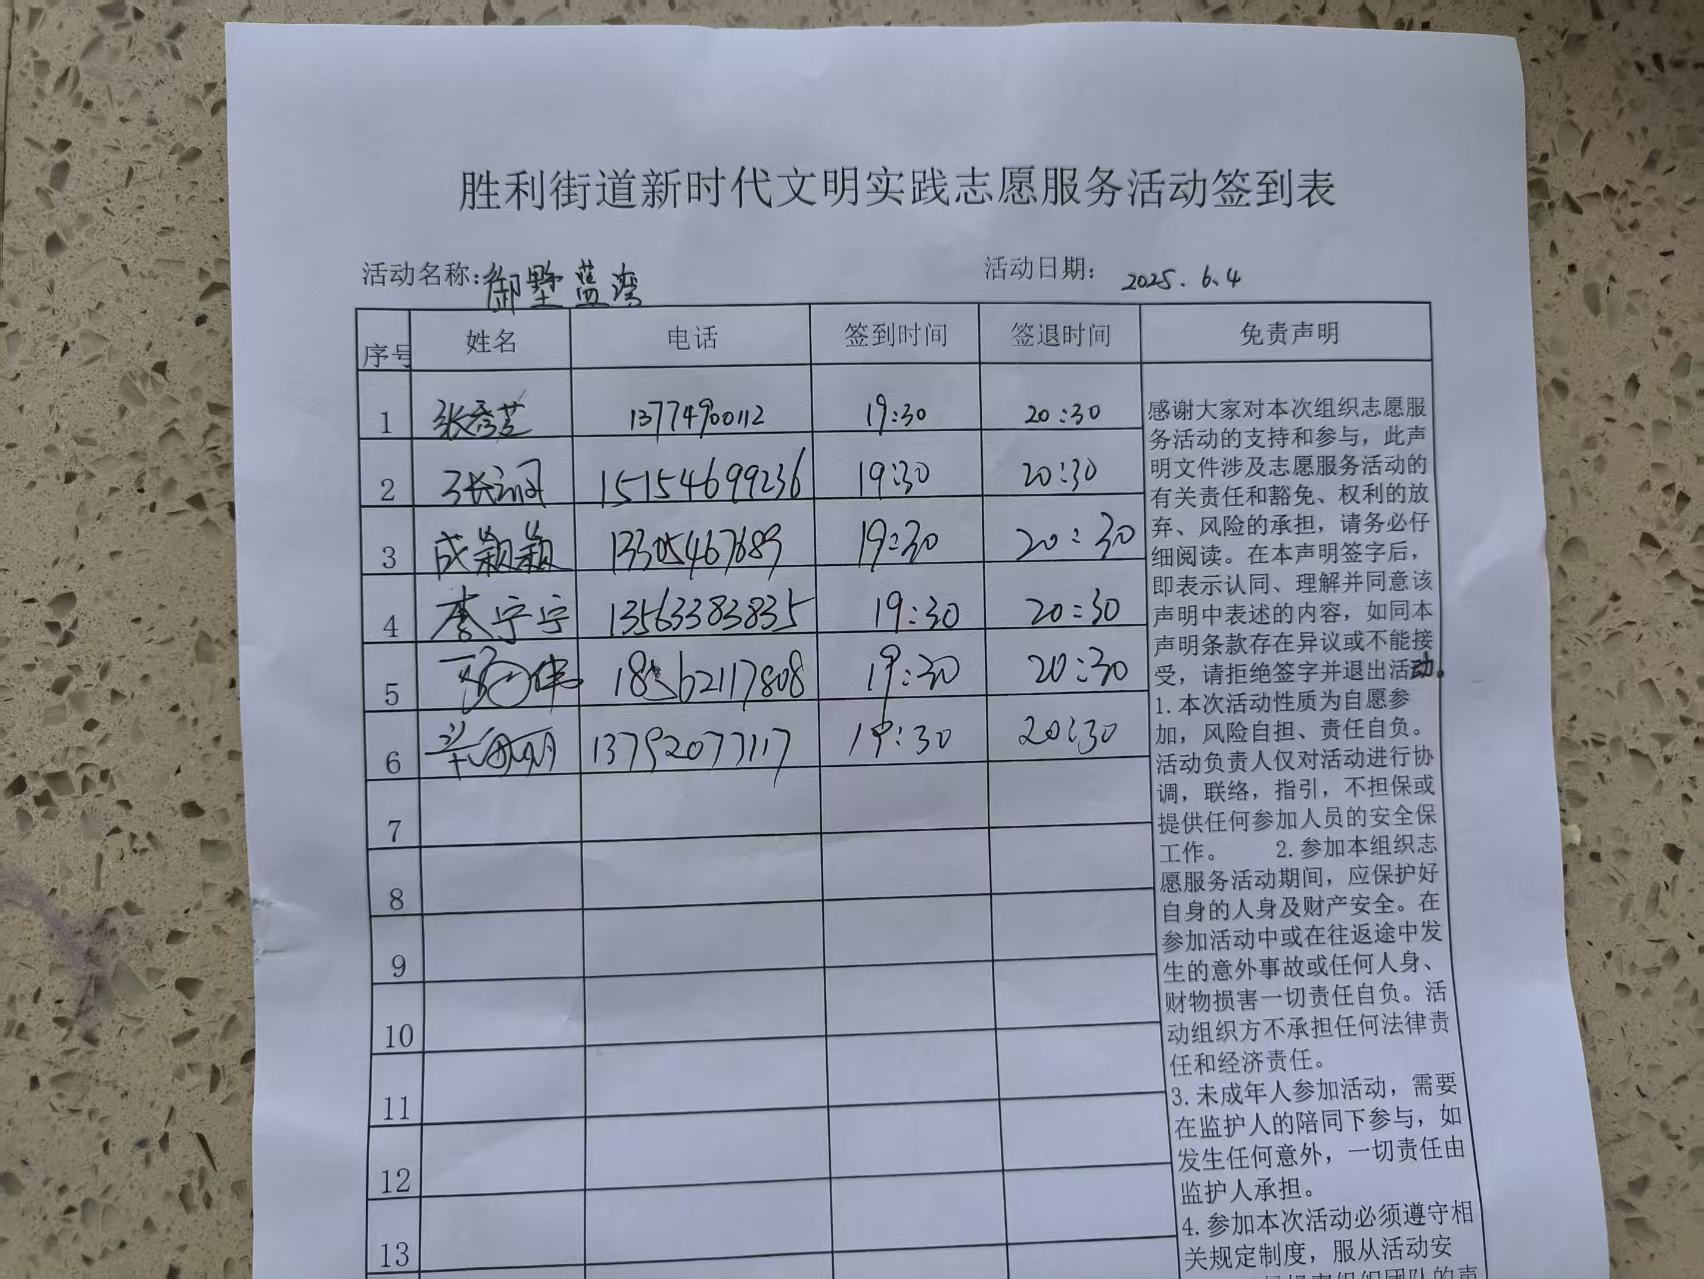 胜利街道新时代文明实践志愿服务活动签到表
活动名称:御墅蓝湾 活动日期: 2025.6.4
序号 姓名 电话 签到时间 签退时间 免责声明
1 张秀芝 13774900112 19:30 20:30
2 张润 15154699236 19:30 20:30
3 成颖颖 13305467689 19:30 20:30
4 李宁宁 13563383835 19:30 20:30
5 18562117808 19:30 20:30
6 13792077117 19:30 20:30
7
8
9
10
11
12
13
感谢大家对本次组织志愿服
务活动的支持和参与，此声
明文件涉及志愿服务活动的
有关责任和豁免、权利的放
弃、风险的承担，请务必仔
细阅读。在本声明签字后，
即表示认同、理解并同意该
声明中表述的内容，如同本
声明条款存在异议或不能接
受，请拒绝签字并退出活动。
1.本次活动性质为自愿参
加，风险自担、责任自负。
活动负责人仅对活动进行协
调，联络，指引，不担保或
提供任何参加人员的安全保
工作。 2.参加本组织志
愿服务活动期间，应保护好
自身的人身及财产安全。在
参加活动中或在往返途中发
生的意外事故或任何人身、
财物损害一切责任自负。活
动组织方不承担任何法律责
任和经济责任。
3.未成年人参加活动，需要
在监护人的陪同下参与，如
发生任何意外，一切责任由
监护人承担。
4.参加本次活动必须遵守相
关规定制度，服从活动安